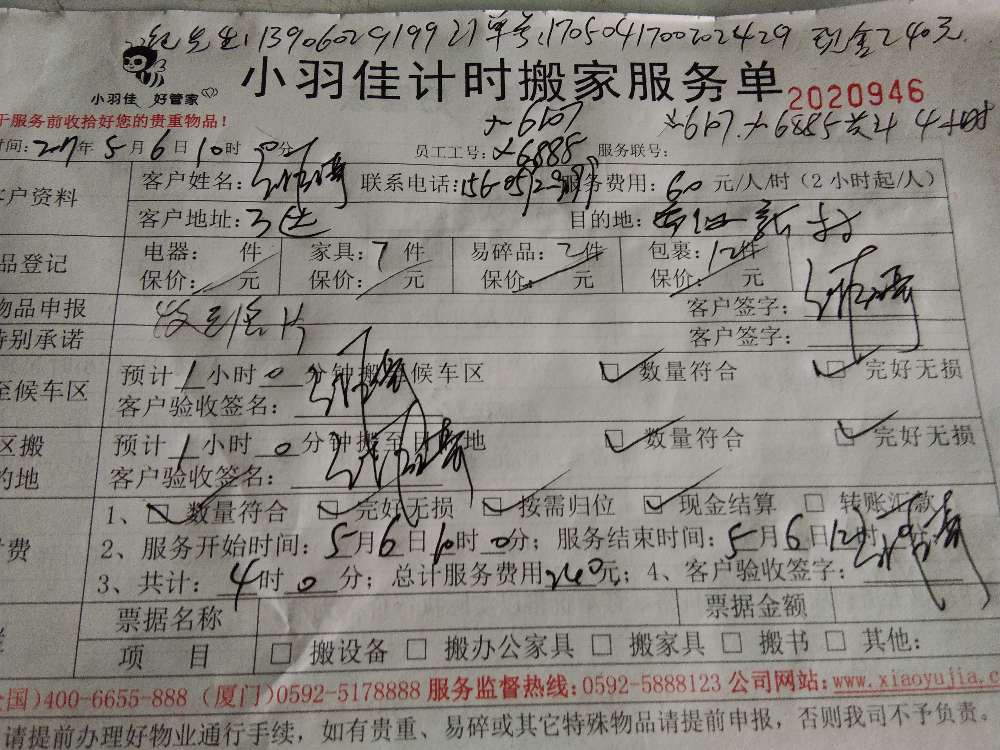 先生:13906029199 21单号:1705041700202429 现金240元
小羽佳 好管家
小羽佳计时搬家服务单 2020946
于服务前收拾好您的贵重物品!
时间:2017年5月6日10时 分 员工工号: 6107 6885 服务联号:
客户资料 客户姓名: 联系电话: 服务费用:60元/人/时(2小时起/人)
客户地址: 目的地: 新村
品登记 电器: 件 家具:7件 易碎品:2件 包裹:12件
保价: 元 保价: 元 保价: 元 保价: 元
物品申报 客户签字:
特别承诺 客户签字:
至候车区 预计1小时0分钟搬 候车区 数量符合 完好无损
客户验收签名:
区搬 预计1小时0分钟搬至目的地 数量符合 完好无损
的地 客户验收签名:
1、数量符合 完好无损 按需归位 现金结算 转账汇款
付费 2、服务开始时间:5月6日10时0分;服务结束时间:5月6日12时 分
3、共计:4时0分;总计服务费用240元;4、客户验收签字:
票据名称 票据金额
项 目 搬设备 搬办公家具 搬家具 搬书 其他:
全国)400-6655-888 (厦门)0592-5178888 服务监督热线:0592-5888123 公司网站:www.xiaoyujia.c
请提前办理好物业通行手续,如有贵重、易碎或其它特殊物品请提前申报,否则我司不予负责。